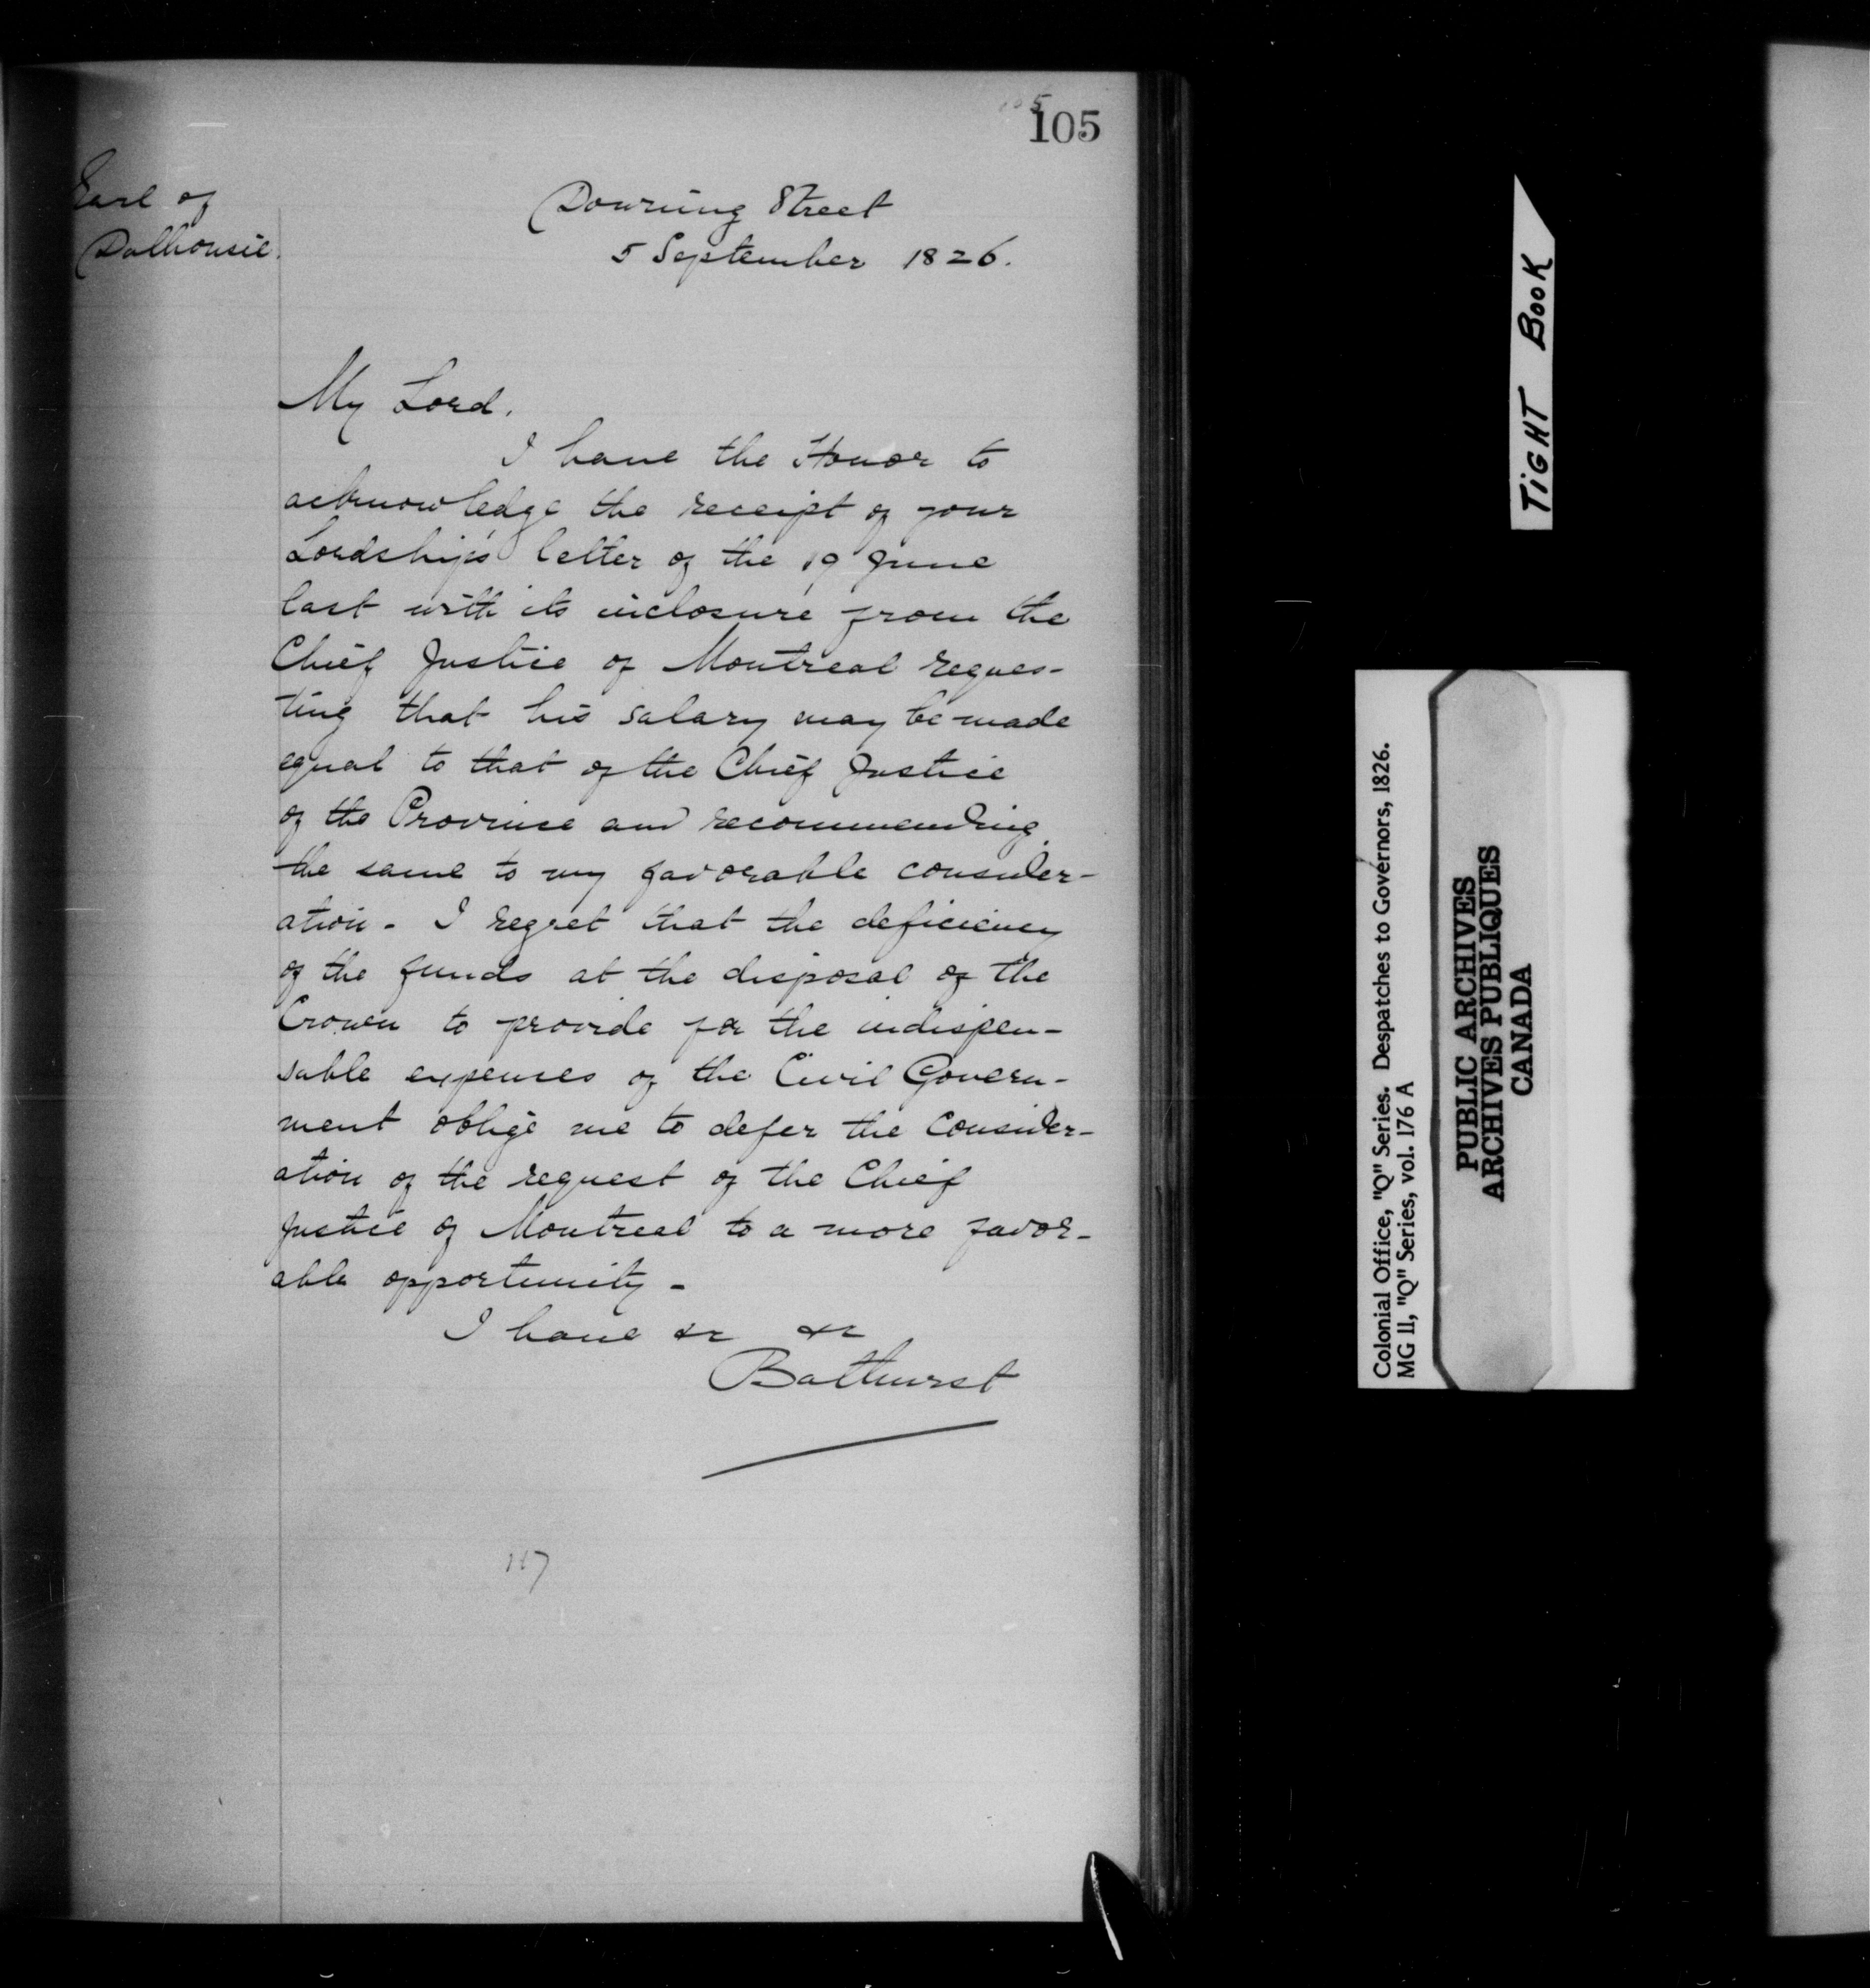 105
105
Earl of
Dalhousie.
Downing Street
5 September 1826.
My Lord.
I have the Honor to
acknowledge the receipt of your
Lordship's letter of the 19 June
last with its inclosure from the
Chief Justice of Montreal reques-
ting that his salary may be made
equal to that of the Chief Justice
of the Province and recommending
the same to my favorable consider-
ation - I regret that the deficiency
of the funds at the disposal of the
Crown to provide for the indispen-
sable expenses of the Civil Govern-
ment oblige me to defer the Consider-
ation of the request of the Chief
Justice of Montreal to a more favor-
able opportunity -
I have &c &c
Bathurst
117
TIGHT BOOK
Colonial Office, "Q" Series. Despatches to Governors, 1826.
MG 11, "Q" Series, vol. 176 A
PUBLIC ARCHIVES
ARCHIVES PUBLIQUES
CANADA